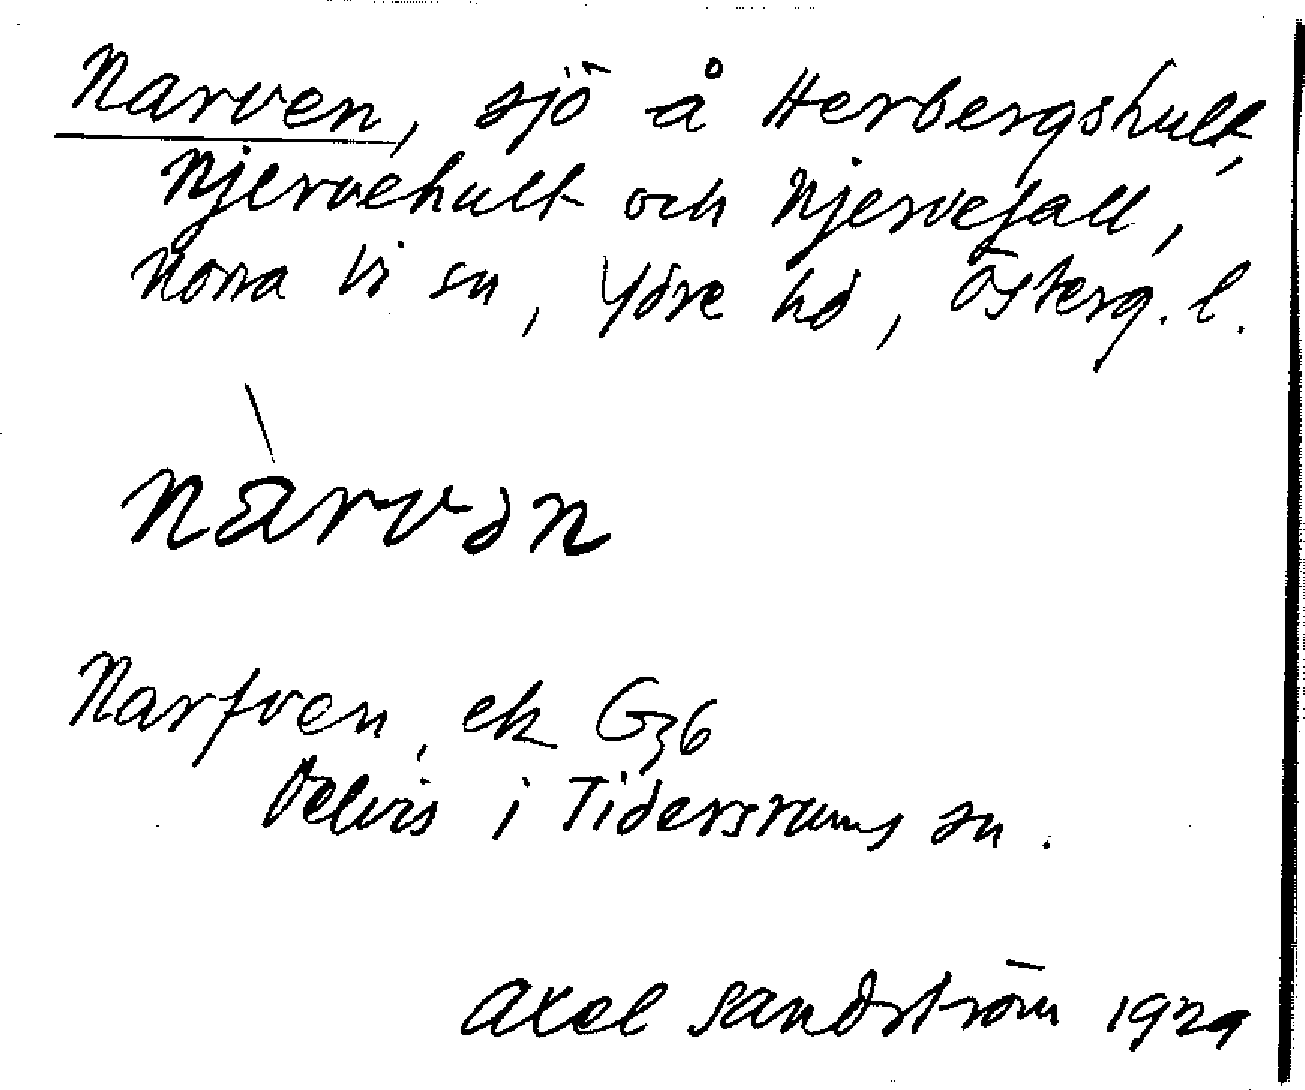 Narven, sjö å Herbergshult,
Njervehult och Njervefall,
Norra Vi sn, Ydre hd, Österg. l.
nàrvən
Narfven, ek G36
Delvis i Tidersrums sn.
Axel Sandström 1929